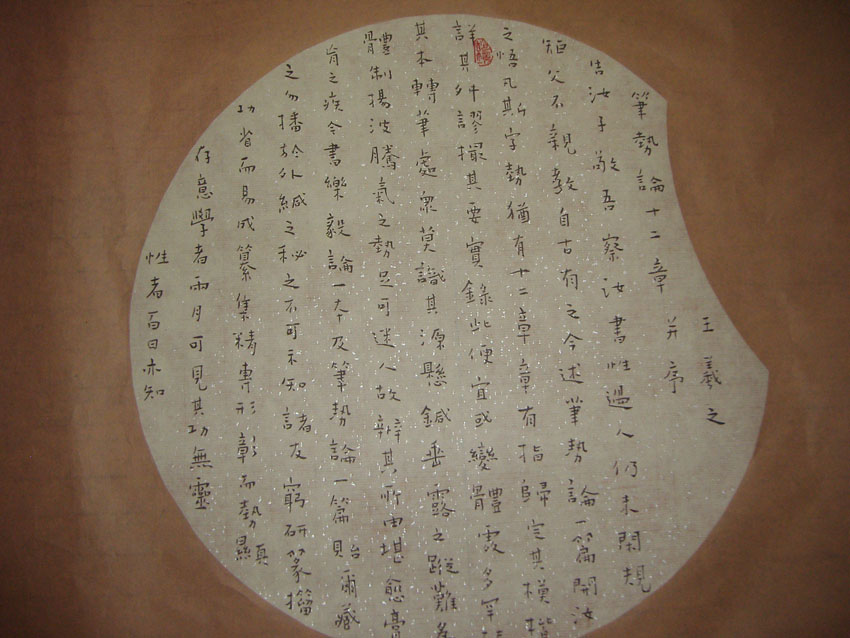 王羲之
筆勢論十二章 并序
告汝子敬吾察汝書性過人仍未閑規
矩父不親教自古有之今述筆勢論一篇開汝
之悟凡斯字勢猶有十二章章有指歸定其模楷
詳其舛謬撮其要實錄此便宜或變體處多罕
其本轉筆處眾莫識其源懸鍼垂露之蹤難為
體制揚波騰氣之勢足可迷人故辨其所由堪愈膏
肓之疾今書樂毅論一本及筆勢論一篇貽爾藏
之勿播於外緘之秘之不可示知諸友窮研篆籀
功省而易成纂集精專形彰而勢顯
存意學者兩月可見其功無靈
性者百日亦知